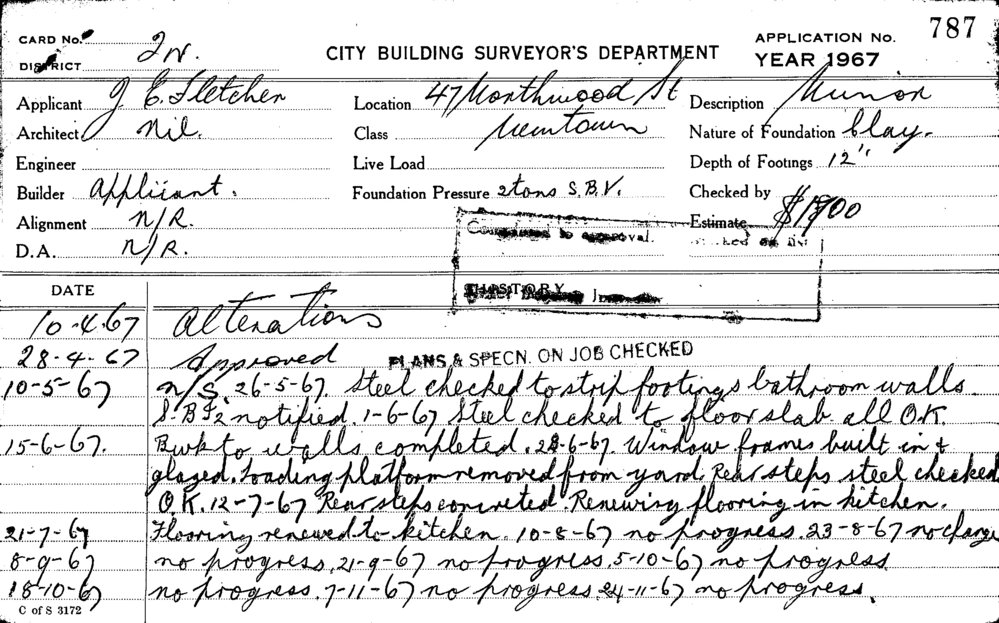 787
CARD No.
DISTRICT 2N.
CITY BUILDING SURVEYOR'S DEPARTMENT
APPLICATION No.
YEAR 1967
Applicant J E. Fletcher
Location 47 Northwood St
Description Minor
Architect Nil.
Class Newtown
Nature of Foundation Clay.
Engineer
Live Load
Depth of Footings 12".
Builder Appliiant.
Foundation Pressure 2tons S.B.V.
Checked by
Alignment N/R.
Estimate $1900
D.A. N/R.
to approval.
HISTORY
DATE
10-4-67 Alterations
28-4-67 Approved PLANS & SPECN. ON JOB CHECKED
10-5-67 N/S. 26-5-67. Steel checked to strip footings bathroom walls
notified. 1-6-67 Steel checked to floor slab all O.K.
15-6-67. Bwk to walls completed. 28-6-67. Window frames built in &
glazed. Loading platform removed from yard. Rear steps steel checked
O.K. 12-7-67 Rear steps concreted. Renewing flooring in kitchen.
21-7-67 Flooring renewed to kitchen. 10-8-67 no progress. 23-8-67 no change
8-9-67 no progress. 21-9-67 no progress. 5-10-67 no progress.
18-10-67 no progress. 7-11-67 no progress. 24-11-67 no progress.
C of S 3172